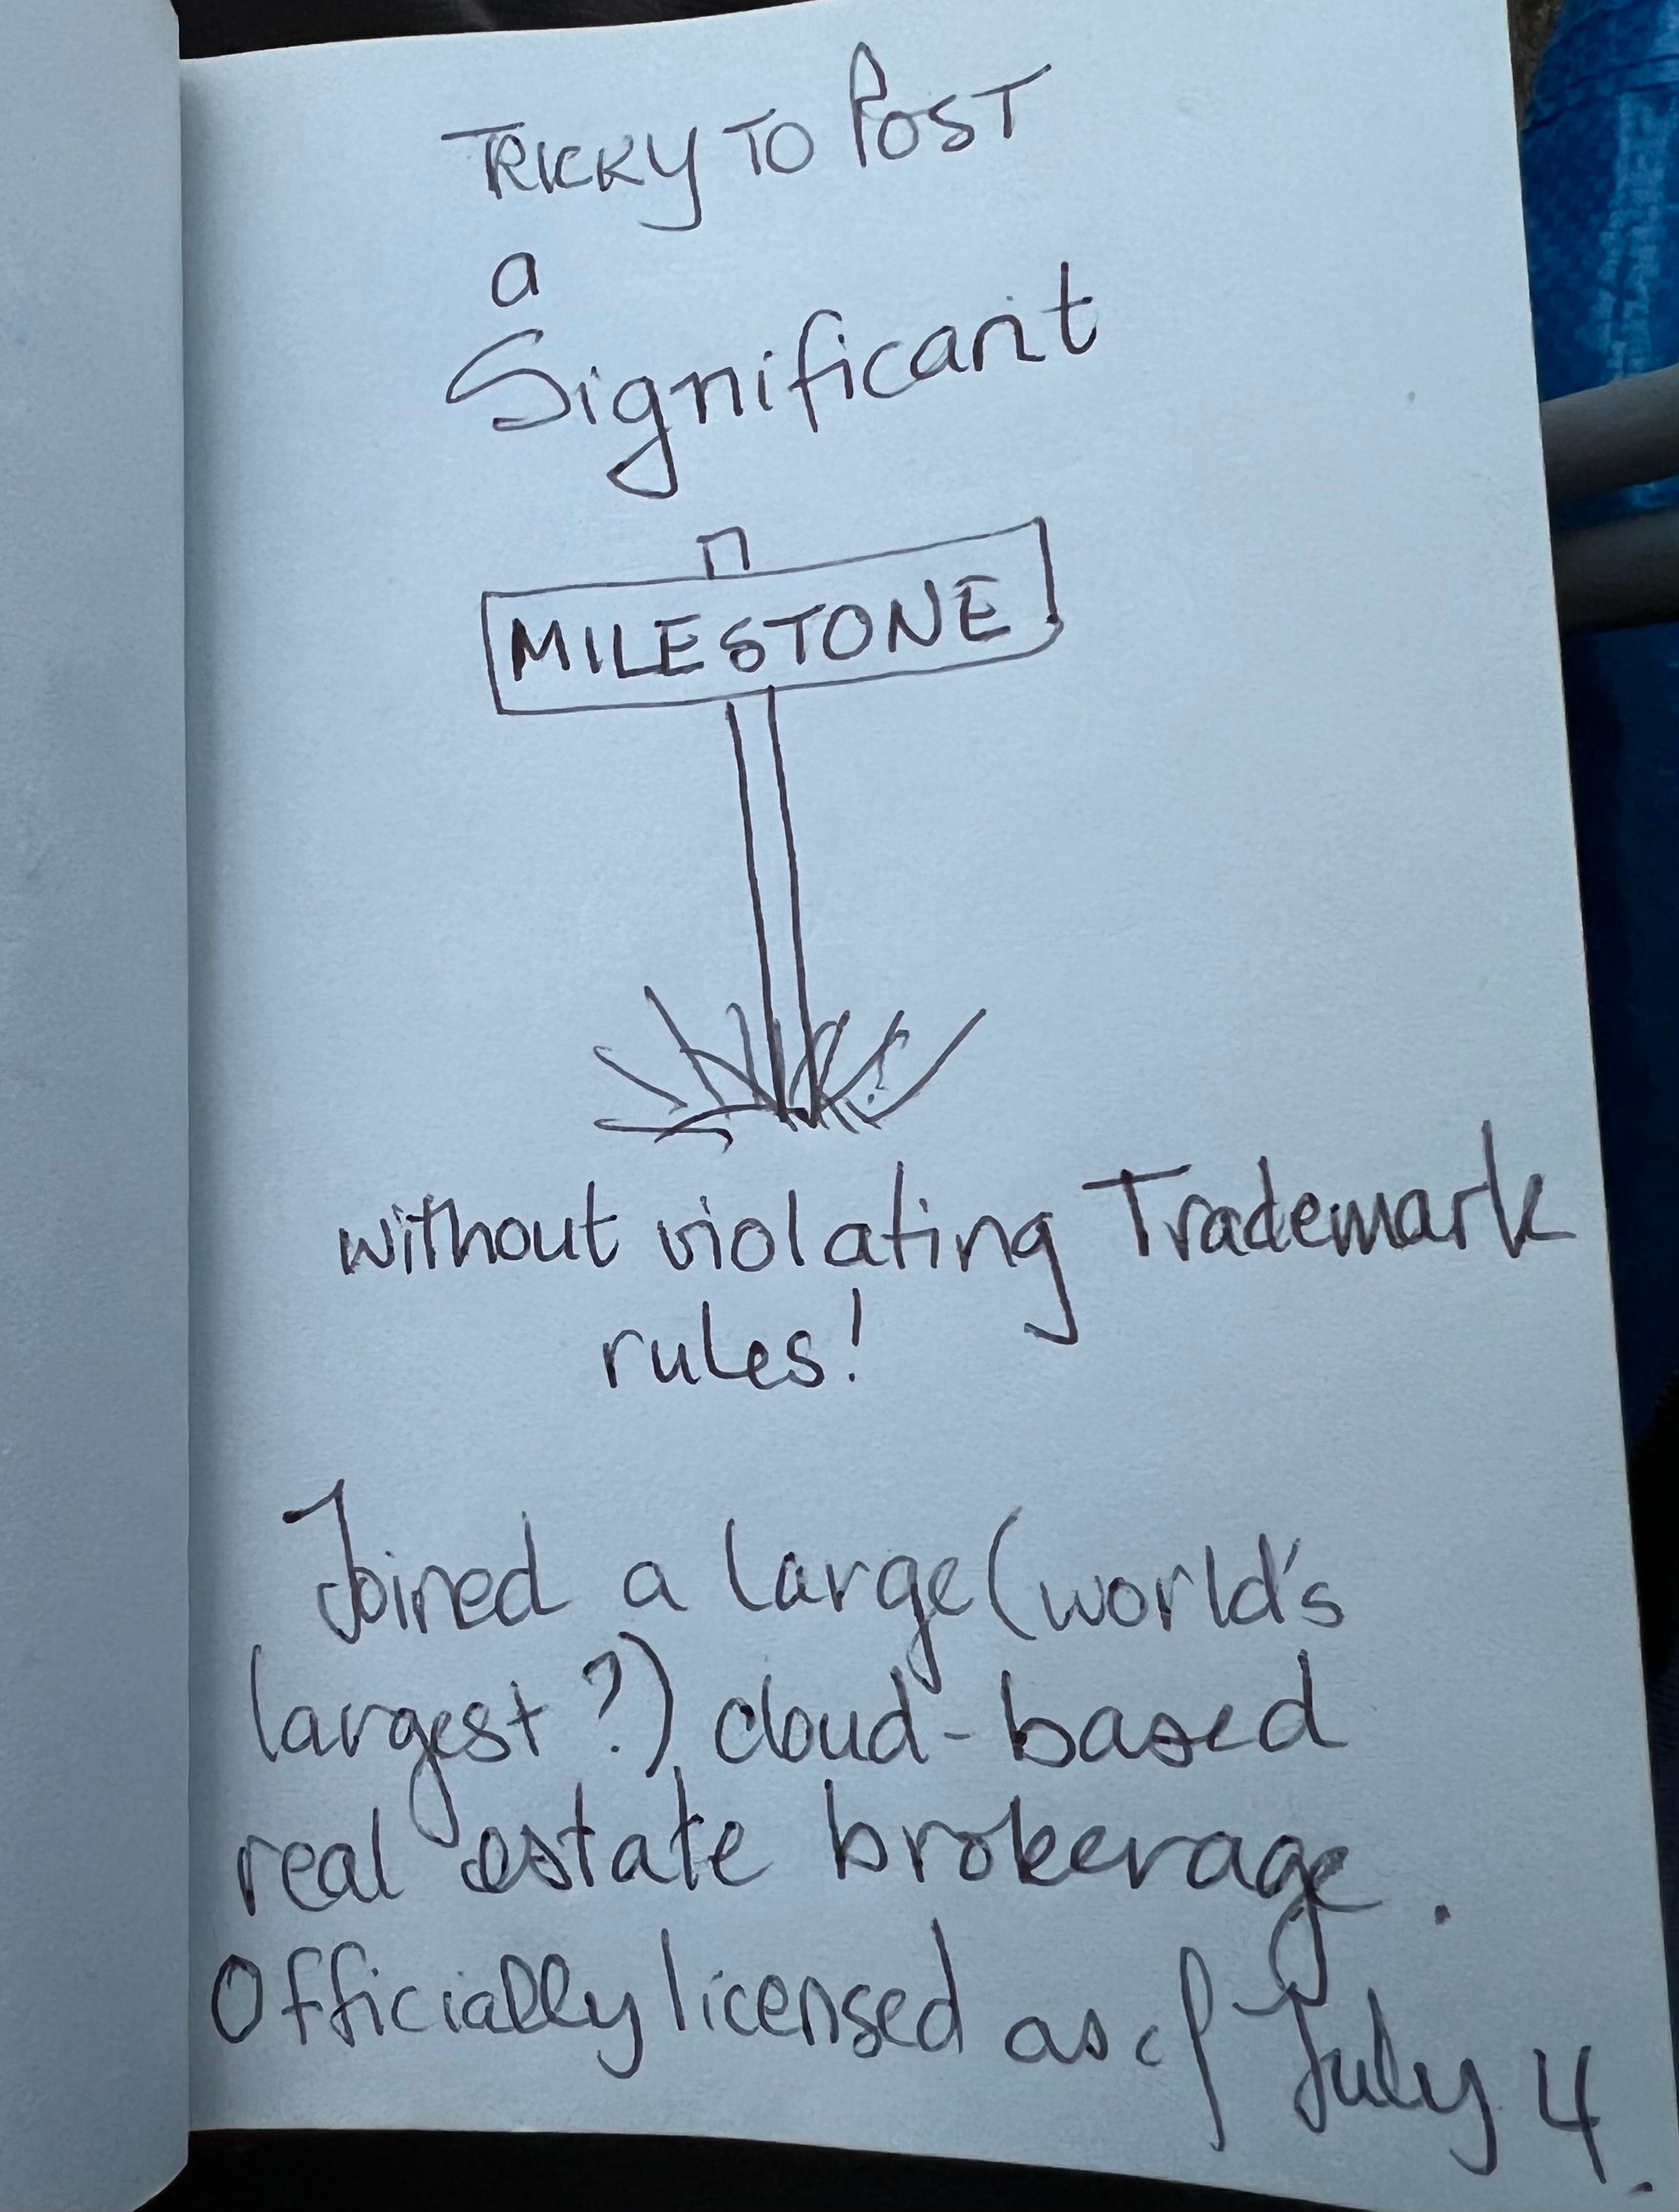 TRICKY TO POST
a
Significant
MILESTONE
without violating Trademark
rules!
Joined a large (world's
largest?) cloud-based
real estate brokerage.
Officially licensed as of July 4.